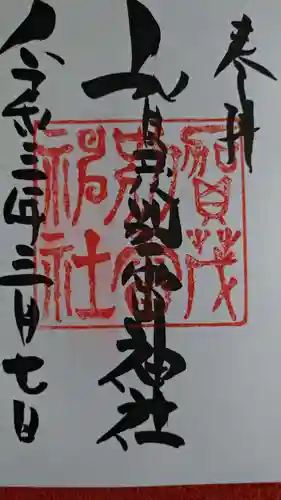 奉拝
賀茂別雷神社
令和三年三月七日
賀茂
神社